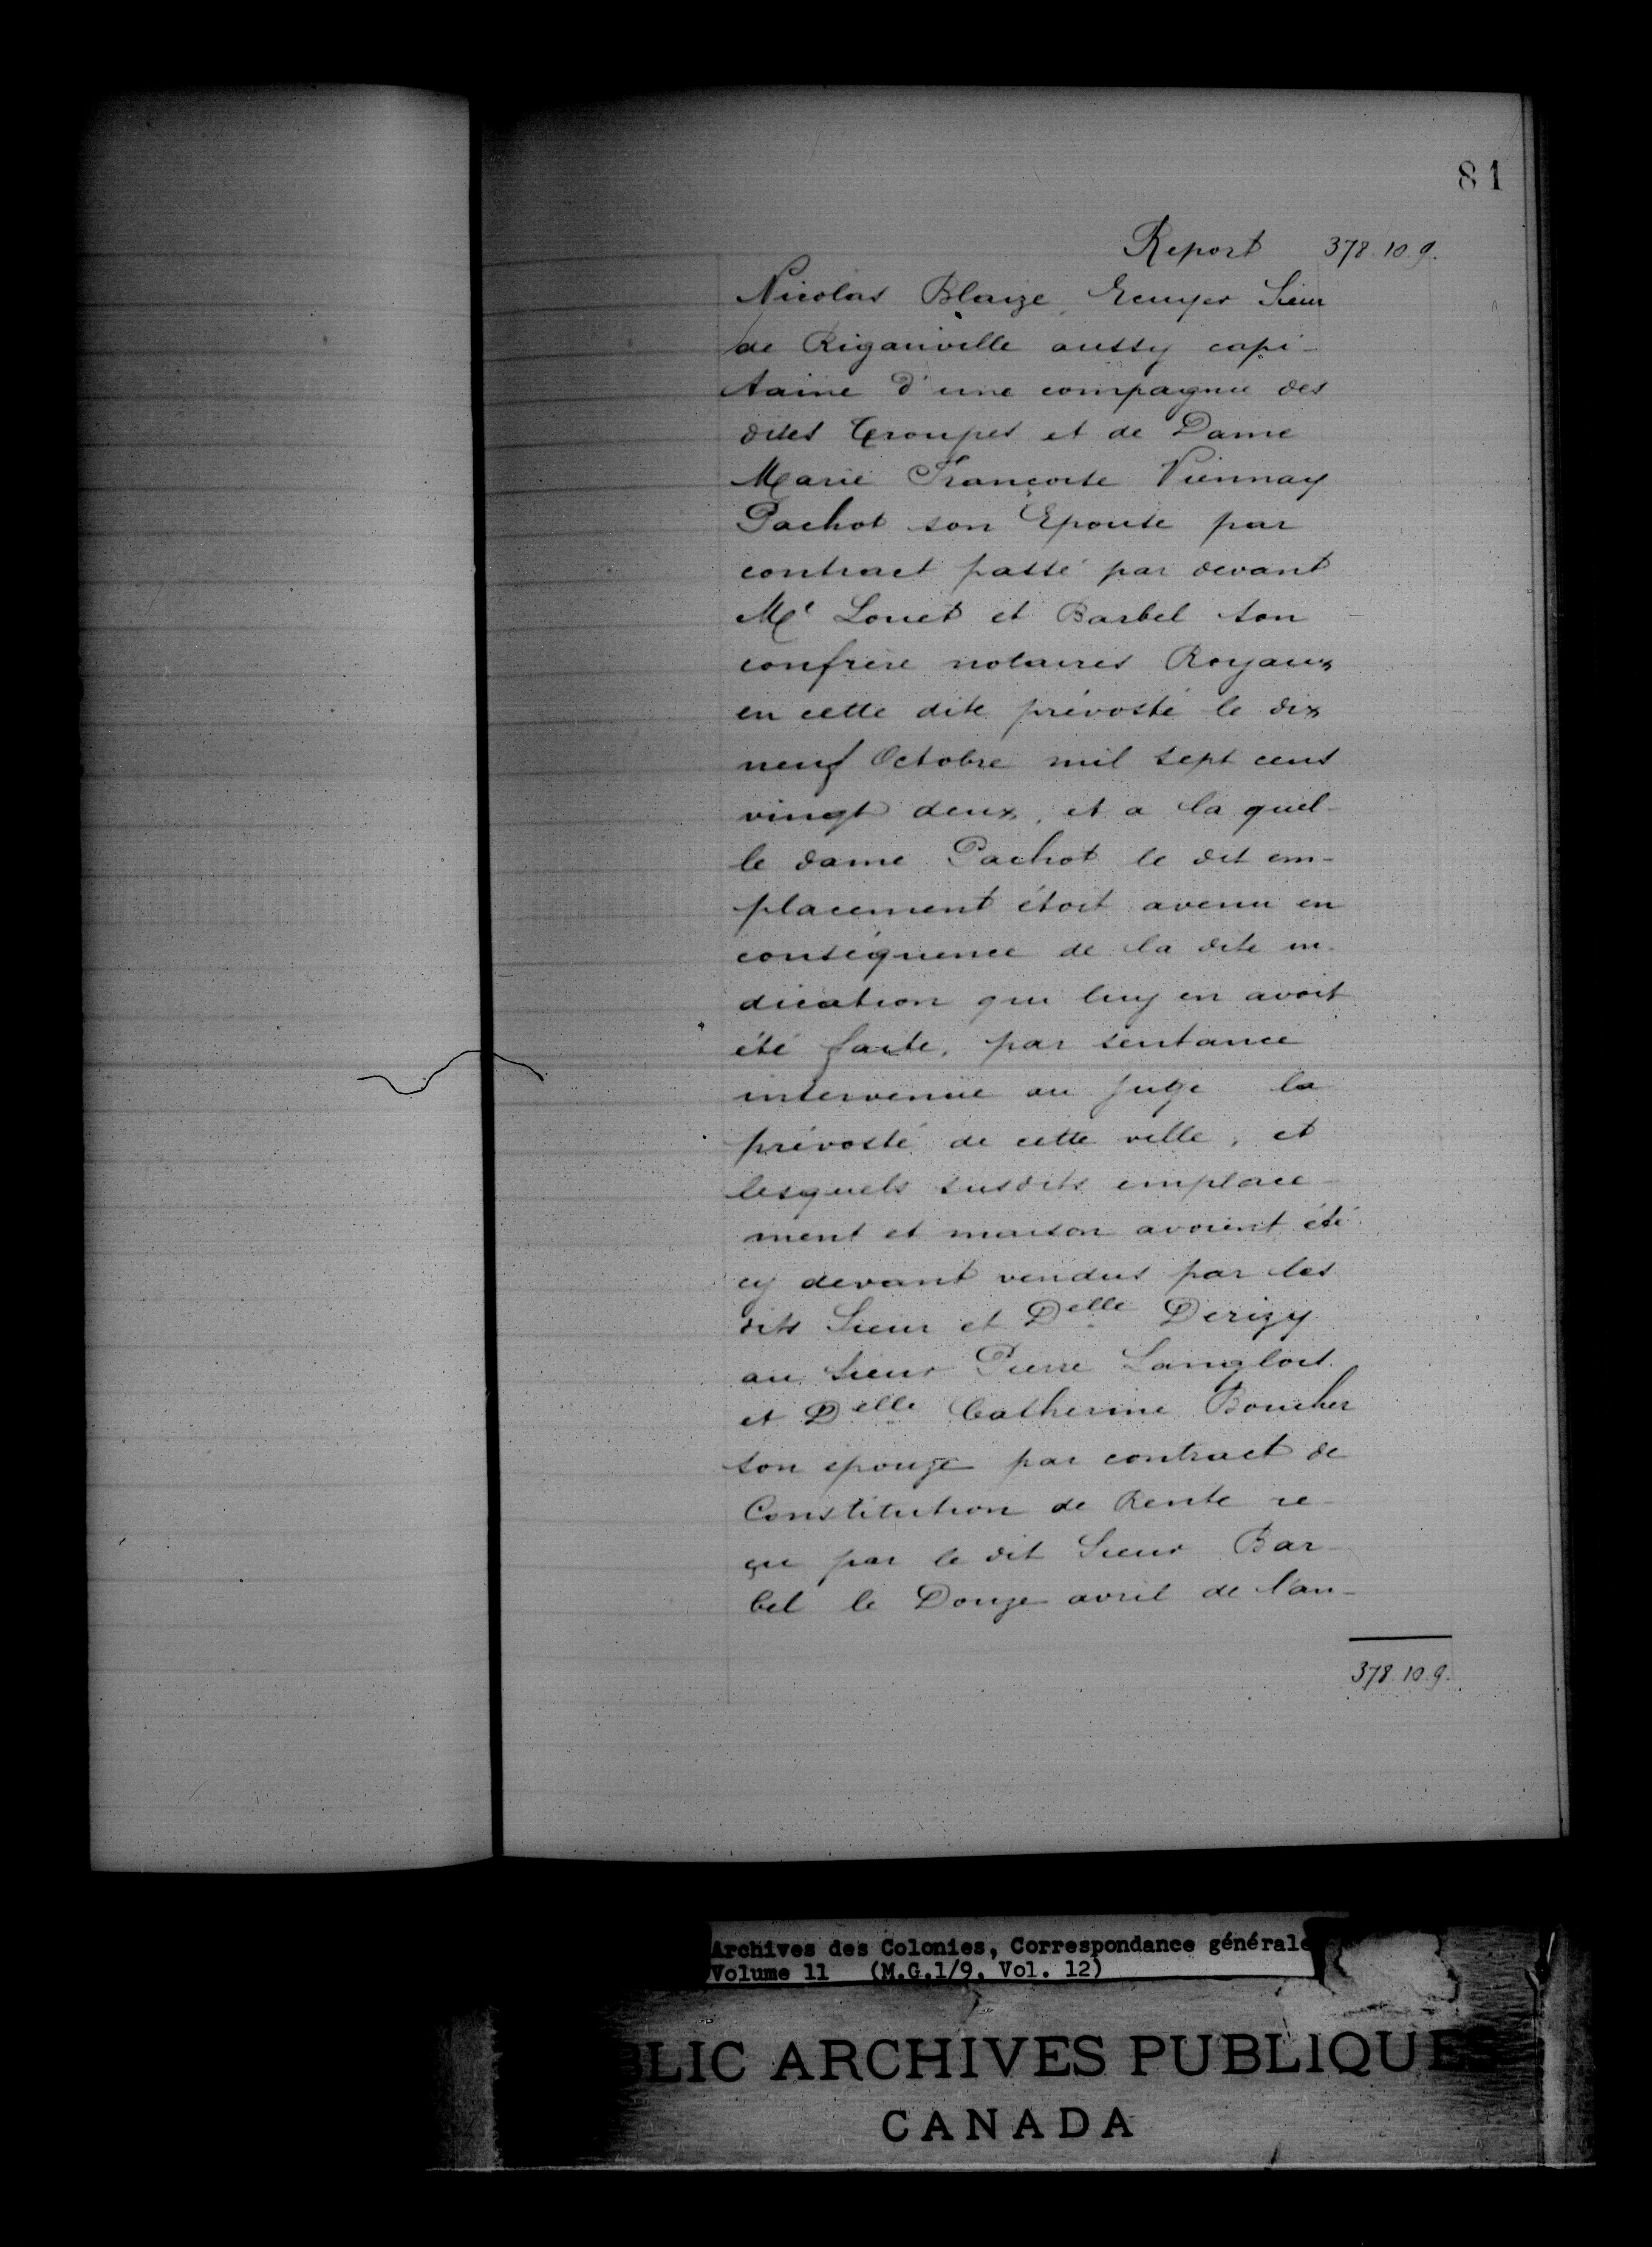 81
Report 378.10.9.
Nicolas Blaize, Ecuyer Sieur
de Rigauville aussy capi-
taine d'une compagnie des
dites Troupes et de Dame
Marie Françoise Viennay
Pachot son Epouse par
contract passé par devant
Me Louet et Barbel son
confrère notaires Royaux
en cette dite prévosté le dix
neuf Octobre mil sept cens
vingt deux, et a la quel-
le dame Pachot le dit em-
placement étoit avenu en
conséquence de la dite in-
dication qui luy en avoit
été faite, par sentance
intervenue au juge la
prévosté de cette ville, et
lesquels susdits emplace-
ment et maison avoient été
cy devant vendus par les
dits Sieur et Delle Derizy
au Sieur Pierre Langlois
et Delle Catherine Boucher
son epouze par contract de
Constitution de Rente re-
çu par le dit Sieur Bar-
bel le Douze avril de l'an-
378.10.9.
Archives des Colonies, Correspondance générale
Volume 11 (M.G.1/9, Vol. 12)
BLIC ARCHIVES PUBLIQUES
CANADA